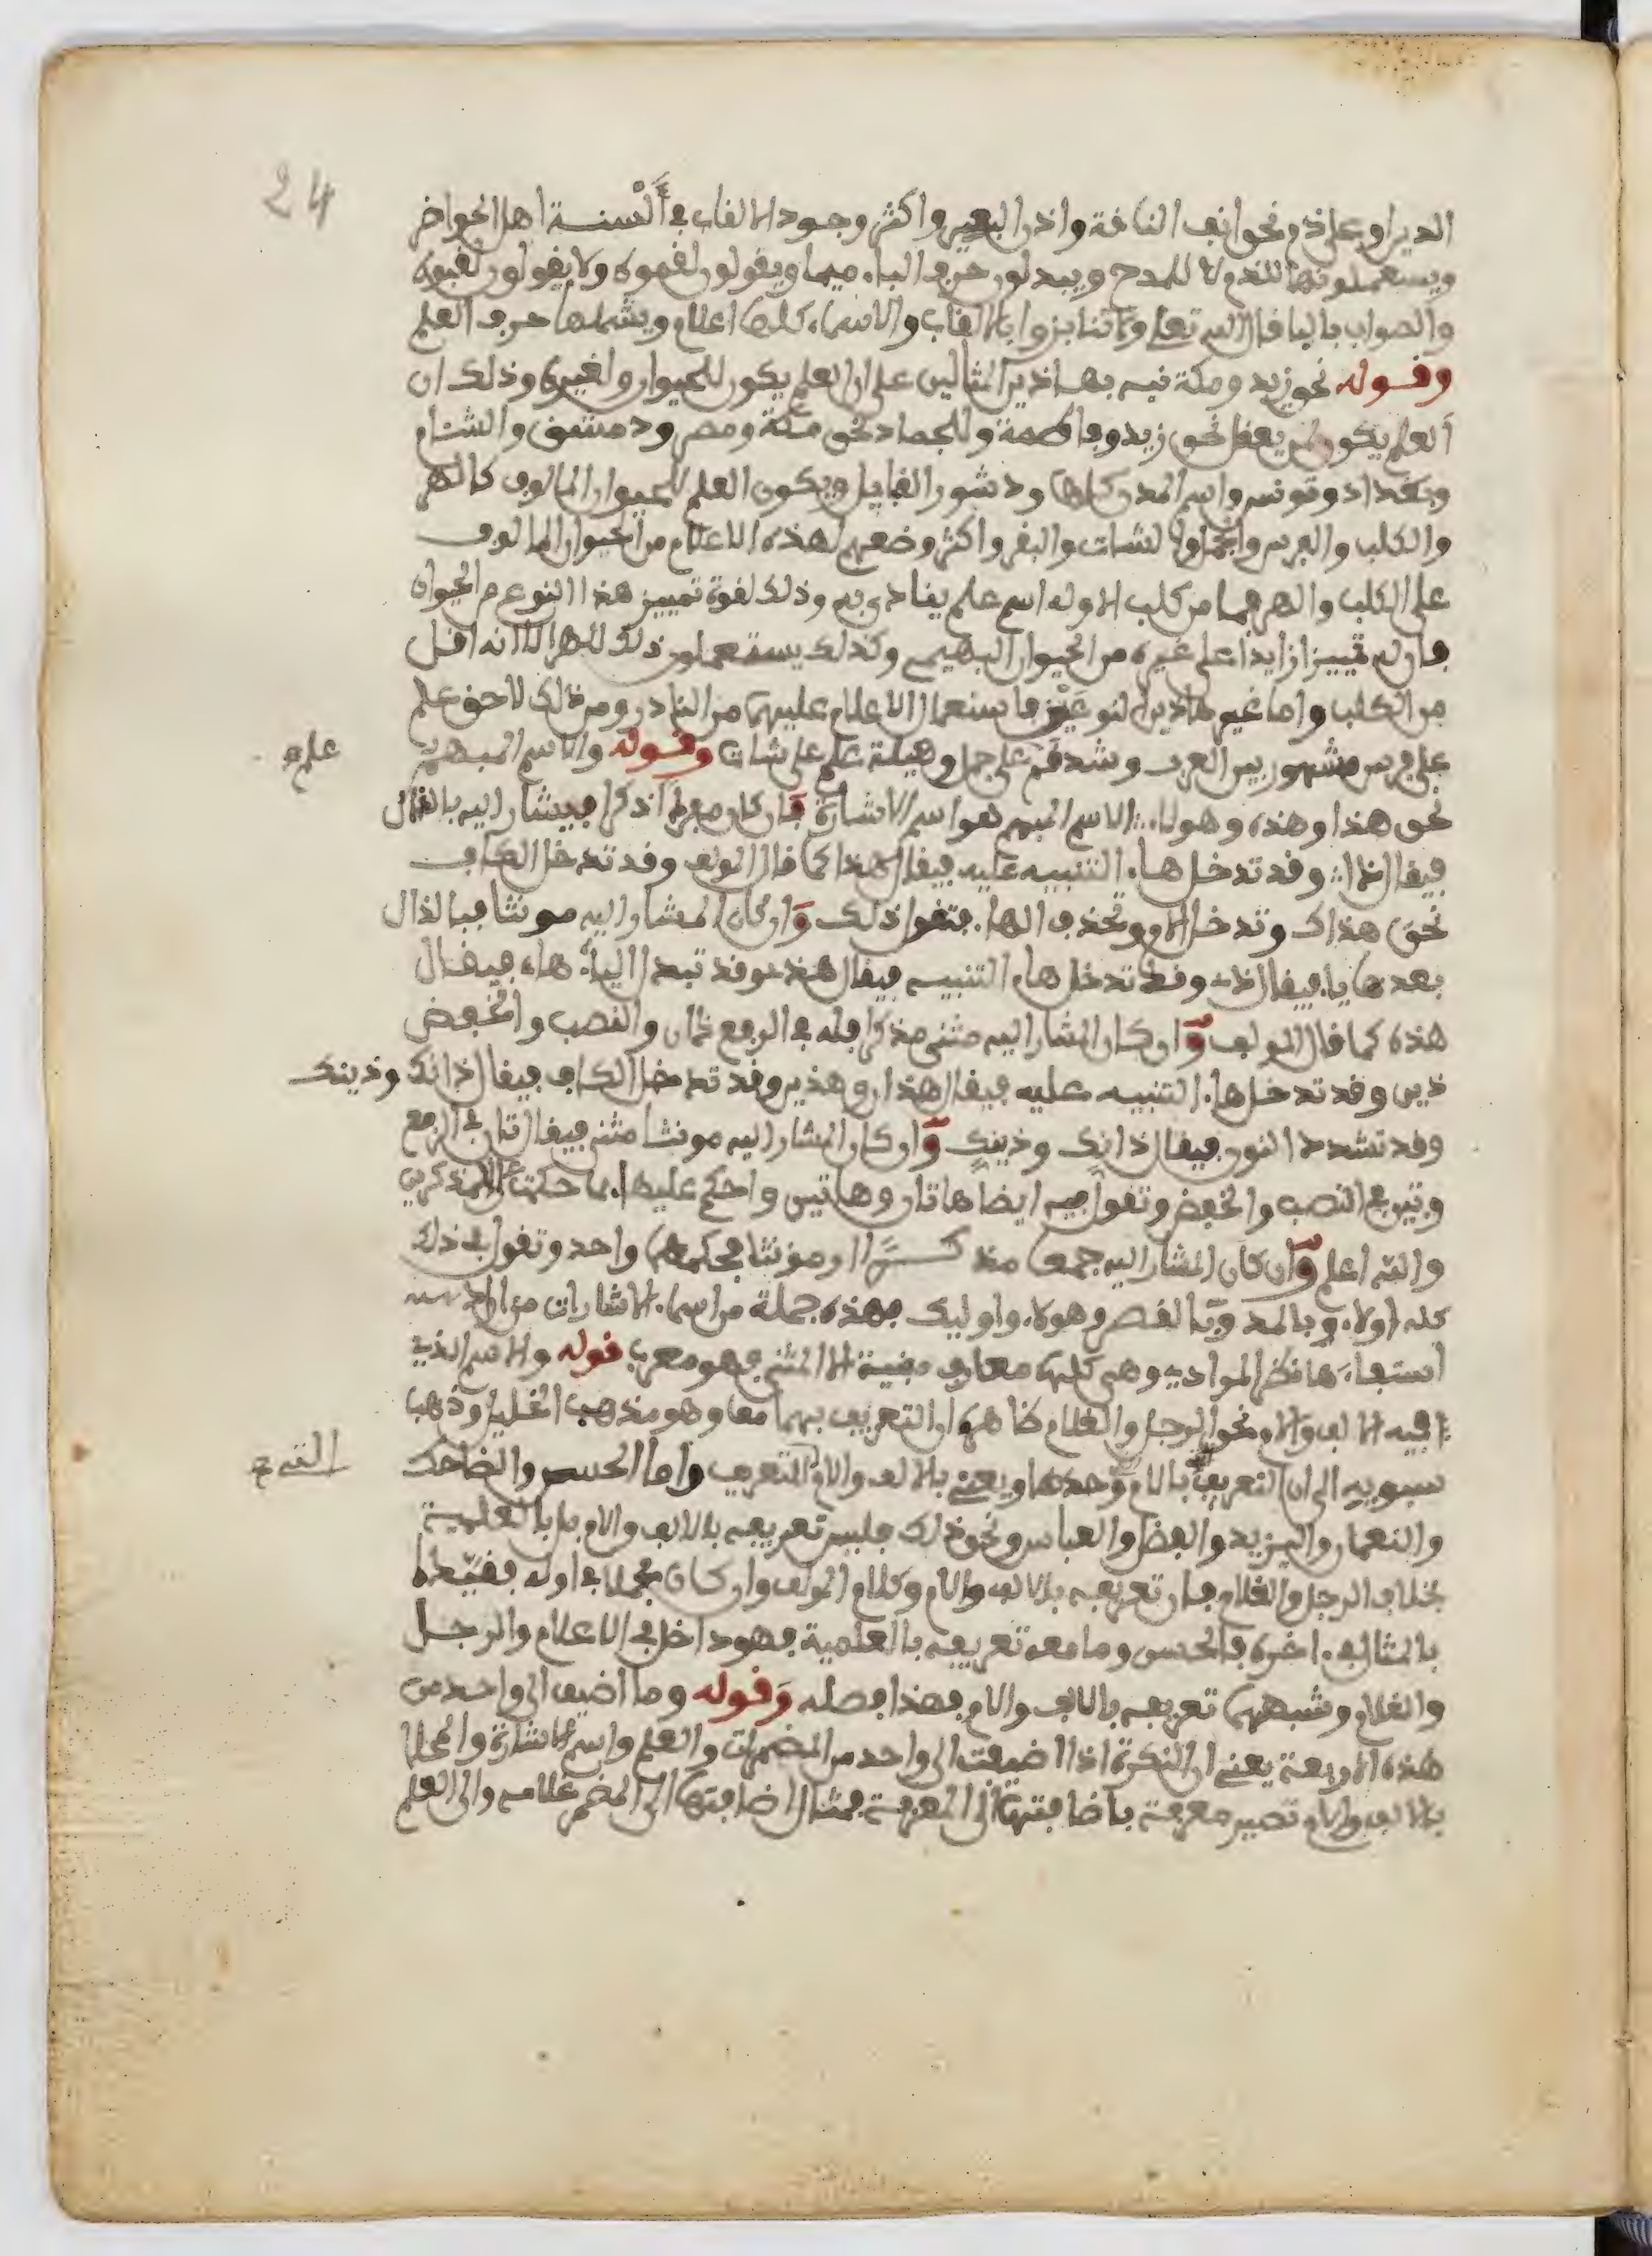 24
الدين او على ذم نحو انف الناقة واذن البعير واكثر وجود الالقاب في أَلْسنة اهل الحواضر
ويستعملونها للذم لا للمدح ويبدلون حرف الباء ميما ويقولون لقموه ولا يقولون لقبوه
والصواب بالبا قال الله تعلى ولا تنابزوا بالالقاب والاسماء كلها اعلام ويشملها حرف العلم
وقوله نحو زيد ومكة نبه بهاذين المثالين على ان العلم يكون للحيوان ولغيره وذلك ان
العلم يكون لمن يعقل نحو زيد وفاطمة وللجماد نحو مكة ومصر ودمشق والشام
وبغداد وتونس واسم المدن كلها ودشور القبايل ويكون العلم للحيوان المالوف كالهر
والكلب والفرس والجمل والشات والبقر واكثر وضعهم لهذه الاعلام من الحيوان المالوف
على الكلب والهر فما من كلب الا وله اسم علم ينادى به وذلك لقوة تمييز هذا النوع من الحيوان
فان له تمييزا زايدا على غيره من الحيوان البهيم وكذلك يستعملون ذلك للهر الا انه اقل
من الكلب واما غير هاذين النوعَيْن فاستعمال الاعلام عليهما من النادر ومن ذلك لاحق علم
على فرس مشهور بين العرب وشدقم على جمل وهيلة علم على شات وقوله والاسم المبهم
علم
نحو هذا وهذه وهولاء الاسم المبهم هو اسم الاشارة فان كان مفردا مذكرا فيشار اليه بالذال
فيقال ذا وقد تدخل هاء التنبيه عليه فيقال هذا كما قال المولف وقد تدخل الكاف
نحو هذاك وتدخل اللام وتحذف الهاء فتقول ذلك وان كان المشار اليه مونثا فبالذال
بعدها يا فيقال ذي وقد تدخل هاء التنبيه فيقال هذي وقد تبدل الياء هاء فيقال
هذه كما قال المولف وان كان المشار اليه مثنى مذكرا فله في الرفع ذان والنصب والخفض
ذين وقد تدخل هاء التنبيه عليه فيقال هذان وهذين وقد تدخل الكاف فيقال ذانك وذينك
وقد تشدد النون فيقال ذانك وذينك وان كان المشار اليه مونثا مثنى فيقال تان في الرفع
وتين في النصب والخفض وتقول فيه ايضا هاتان وهاتين واحكم عليها بما حكمت على المذكرين
والله اعلم وان كان المشار اليه جمعا مذكرا او مونثا فحكمهما واحد وتقول في ذلك
كله اولاء وبالمد وبالقصر وهولاء واوليك فهذه جملة من اسماء الاشارات من اراد
استيفاءها نظر المرادي وهي كلها معارف مبنية الا المثنى فهو معرب قوله والاسم الذي
فيه الالف واللام نحو الرجل والغلام ظاهره ان التعريف بهما معا وهو مذهب الخليل وذهب
سبويه الى ان التعريف باللام وحدها ويعني بالالف واللام التعريف واما الحسن والضحاك
والنعمان واليزيد والفضل والعباس ونحو ذلك فليس تعريفه بالالف واللام بل بالعلمية
بخلاف الرجل والغلام فان تعريفه بالالف واللام وكلام المولف وان كان مجملا في اوله فقيده
بالمثال في اخره فالحسن وما معه تعريفه بالعلمية فهو داخل في الاعلام والرجل
والغلام وشبههما تعريفه بالالف واللام فهذا فصله وقوله وما اضيف الى واحد من
هذه الاربعة يعني ان النكرة اذا اضيفت الى واحد من المضمرات والعلم واسم الاشارة والمحلا
بالالف واللام تصير معرفة باضافتها الى المعرفة فمثال اضافتها الى المضمر غلامه والى العلم